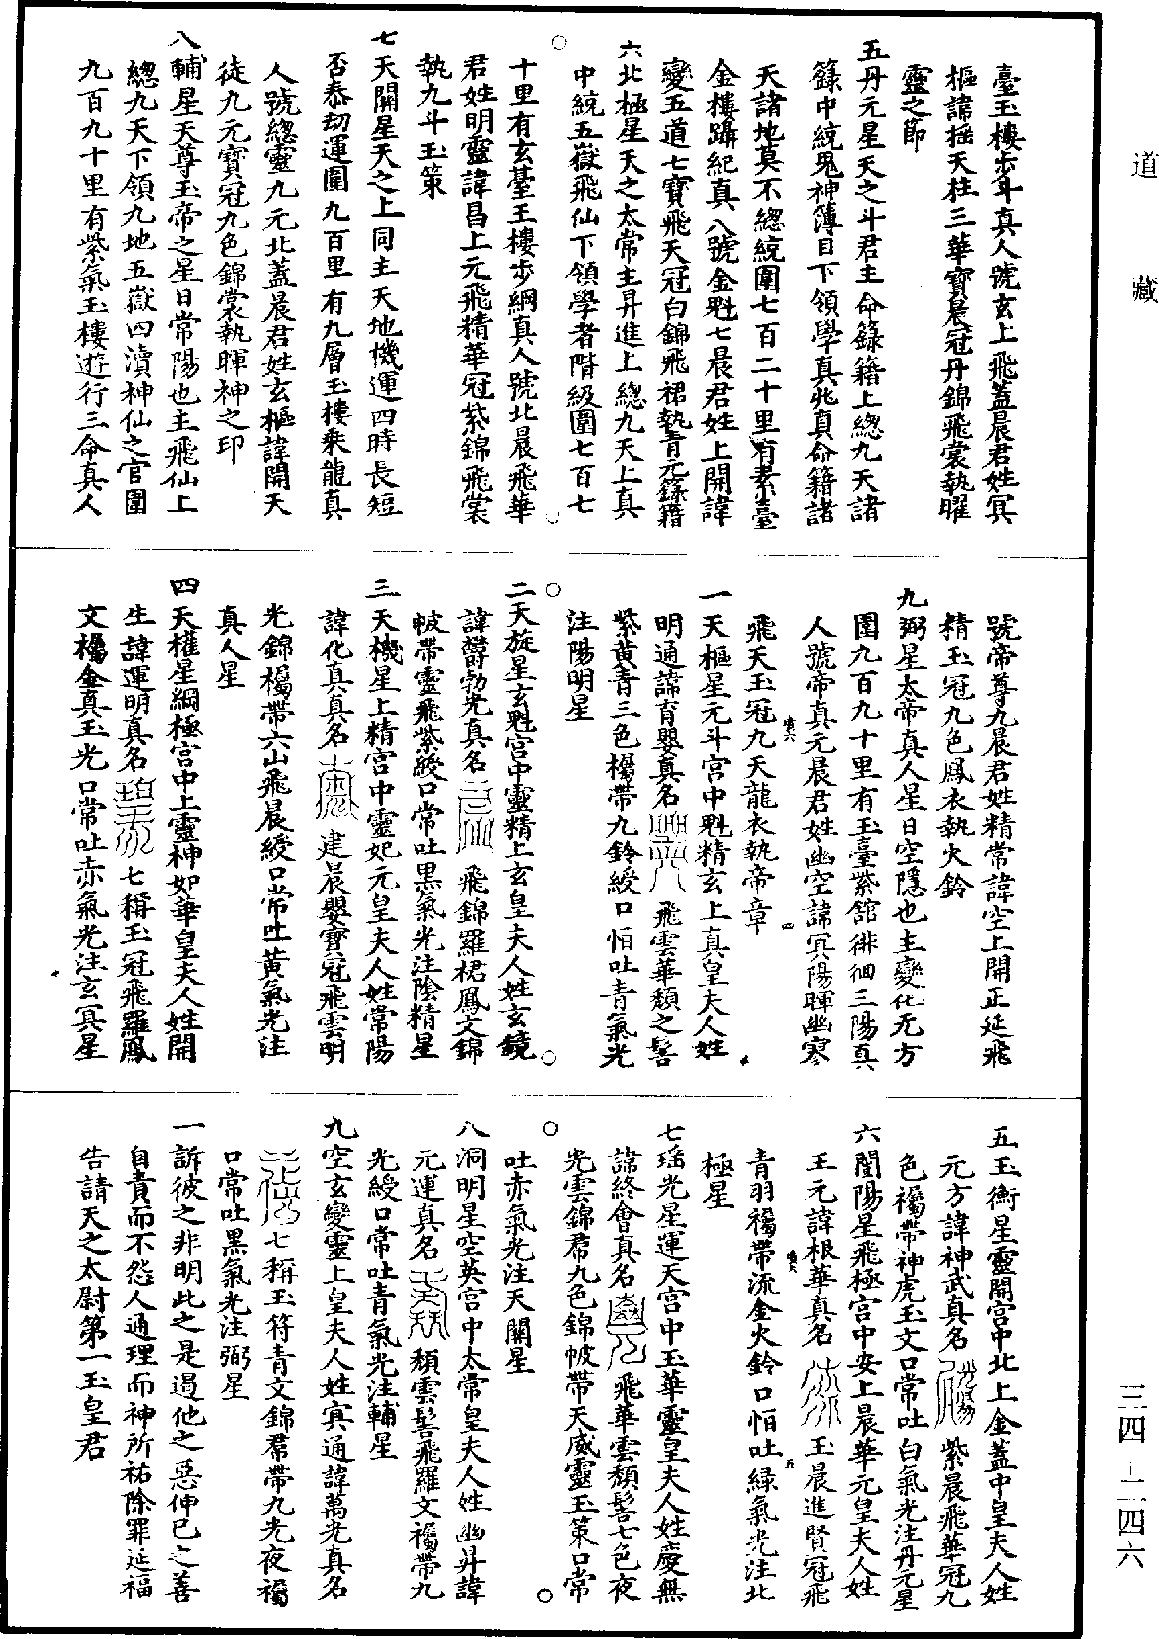 道藏
臺玉樓步斗真人號玄上飛蓋晨君姓冥
樞諱搖天柱三華寶晨冠丹錦飛裳執曜
靈之節
五丹元星天之斗君主命錄籍上總九天諸
籙中統鬼神簿目下領學真兆真命籍諸
天諸地莫不總統圍七百二十里有素臺
金樓躡紀真人號金魁七晨君姓上開諱
變五道七寶飛天冠白錦飛裙執青元籙籍
六北極星天之太常主昇進上總九天上真
中統五嶽飛仙下領學者階級圍七百七
十里有玄臺玉樓步綱真人號北晨飛華
君姓明靈諱昌上元飛精華冠紫錦飛裳
執九斗玉策
七天關星天之上同主天地機運四時長短
否泰劫運圍九百里有九層玉樓乘龍真
人號總靈九元北蓋晨君姓玄樞諱開天
徒九元寶冠九色錦裳執暉神之印
八輔星天尊玉帝之星日常陽也主飛仙上
總九天下領九地五嶽四瀆神仙之官圍
九百九十里有紫氣玉樓遊行三命真人
號帝尊九晨君姓精常諱空上開正延飛
精玉冠九色鳳衣執火鈴
九弼星太帝真人星日空隱也主變化无方
圍九百九十里有玉臺紫館徘徊三陽真
人號帝真元晨君姓幽空諱冥陽暉幽寥
飛天玉冠九天龍衣執帝章
一天樞星元斗宮中魁精玄上真皇夫人姓
明通諱育嬰真名 飛雲華頹之髻
紫黃青三色襡帶九鈴綬口恒吐青氣光
注陽明星
二天旋星玄魁宮中靈精上玄皇夫人姓玄鏡
諱欝勃光真名 飛錦羅裙鳳文錦
帔帶靈飛紫綬口常吐黑氣光注陰精星
三天機星上精宮中靈妃元皇夫人姓常陽
諱化真真名 建晨嬰寶冠飛雲明
光錦襡帶六山飛晨綬口常吐黃氣光注
真人星
四天權星綱極宮中上靈神如華皇夫人姓開
生諱運明真名 七稱玉冠飛羅鳳
文襡金真玉光口常吐赤氣光注玄冥星
五玉衡星靈開宮中北上金蓋中皇夫人姓
元方諱神武真名 紫晨飛華冠九
色襡帶神虎玉文口常吐白氣光注丹元星
六闓陽星飛極宮中安上晨華元皇夫人姓
王元諱根華真名 玉晨進賢冠飛
青羽襡帶流金火鈴口恒吐緑氣光注北
極星
七瑶光星運天宮中玉華靈皇夫人姓慶無
諱終會真名 飛華雲頹髻七色夜
光雲錦帬九色錦帔帶天威靈玉策口常
吐赤氣光注天關星
八洞明星空英宮中太常皇夫人姓幽昇諱
元運真名 頹雲髻飛羅文襡帶九
光綬口常吐青氣光注輔星
九空玄變靈上皇夫人姓冥通諱萬光真名
七稱玉符青文錦帬帶九光夜襡
口常吐黑氣光注弼星
一訴彼之非明此之是遏他之惡伸已之善
自責而不怨人通理而神所祐除罪延福
告請天之太尉第一玉皇君
三四－二四六